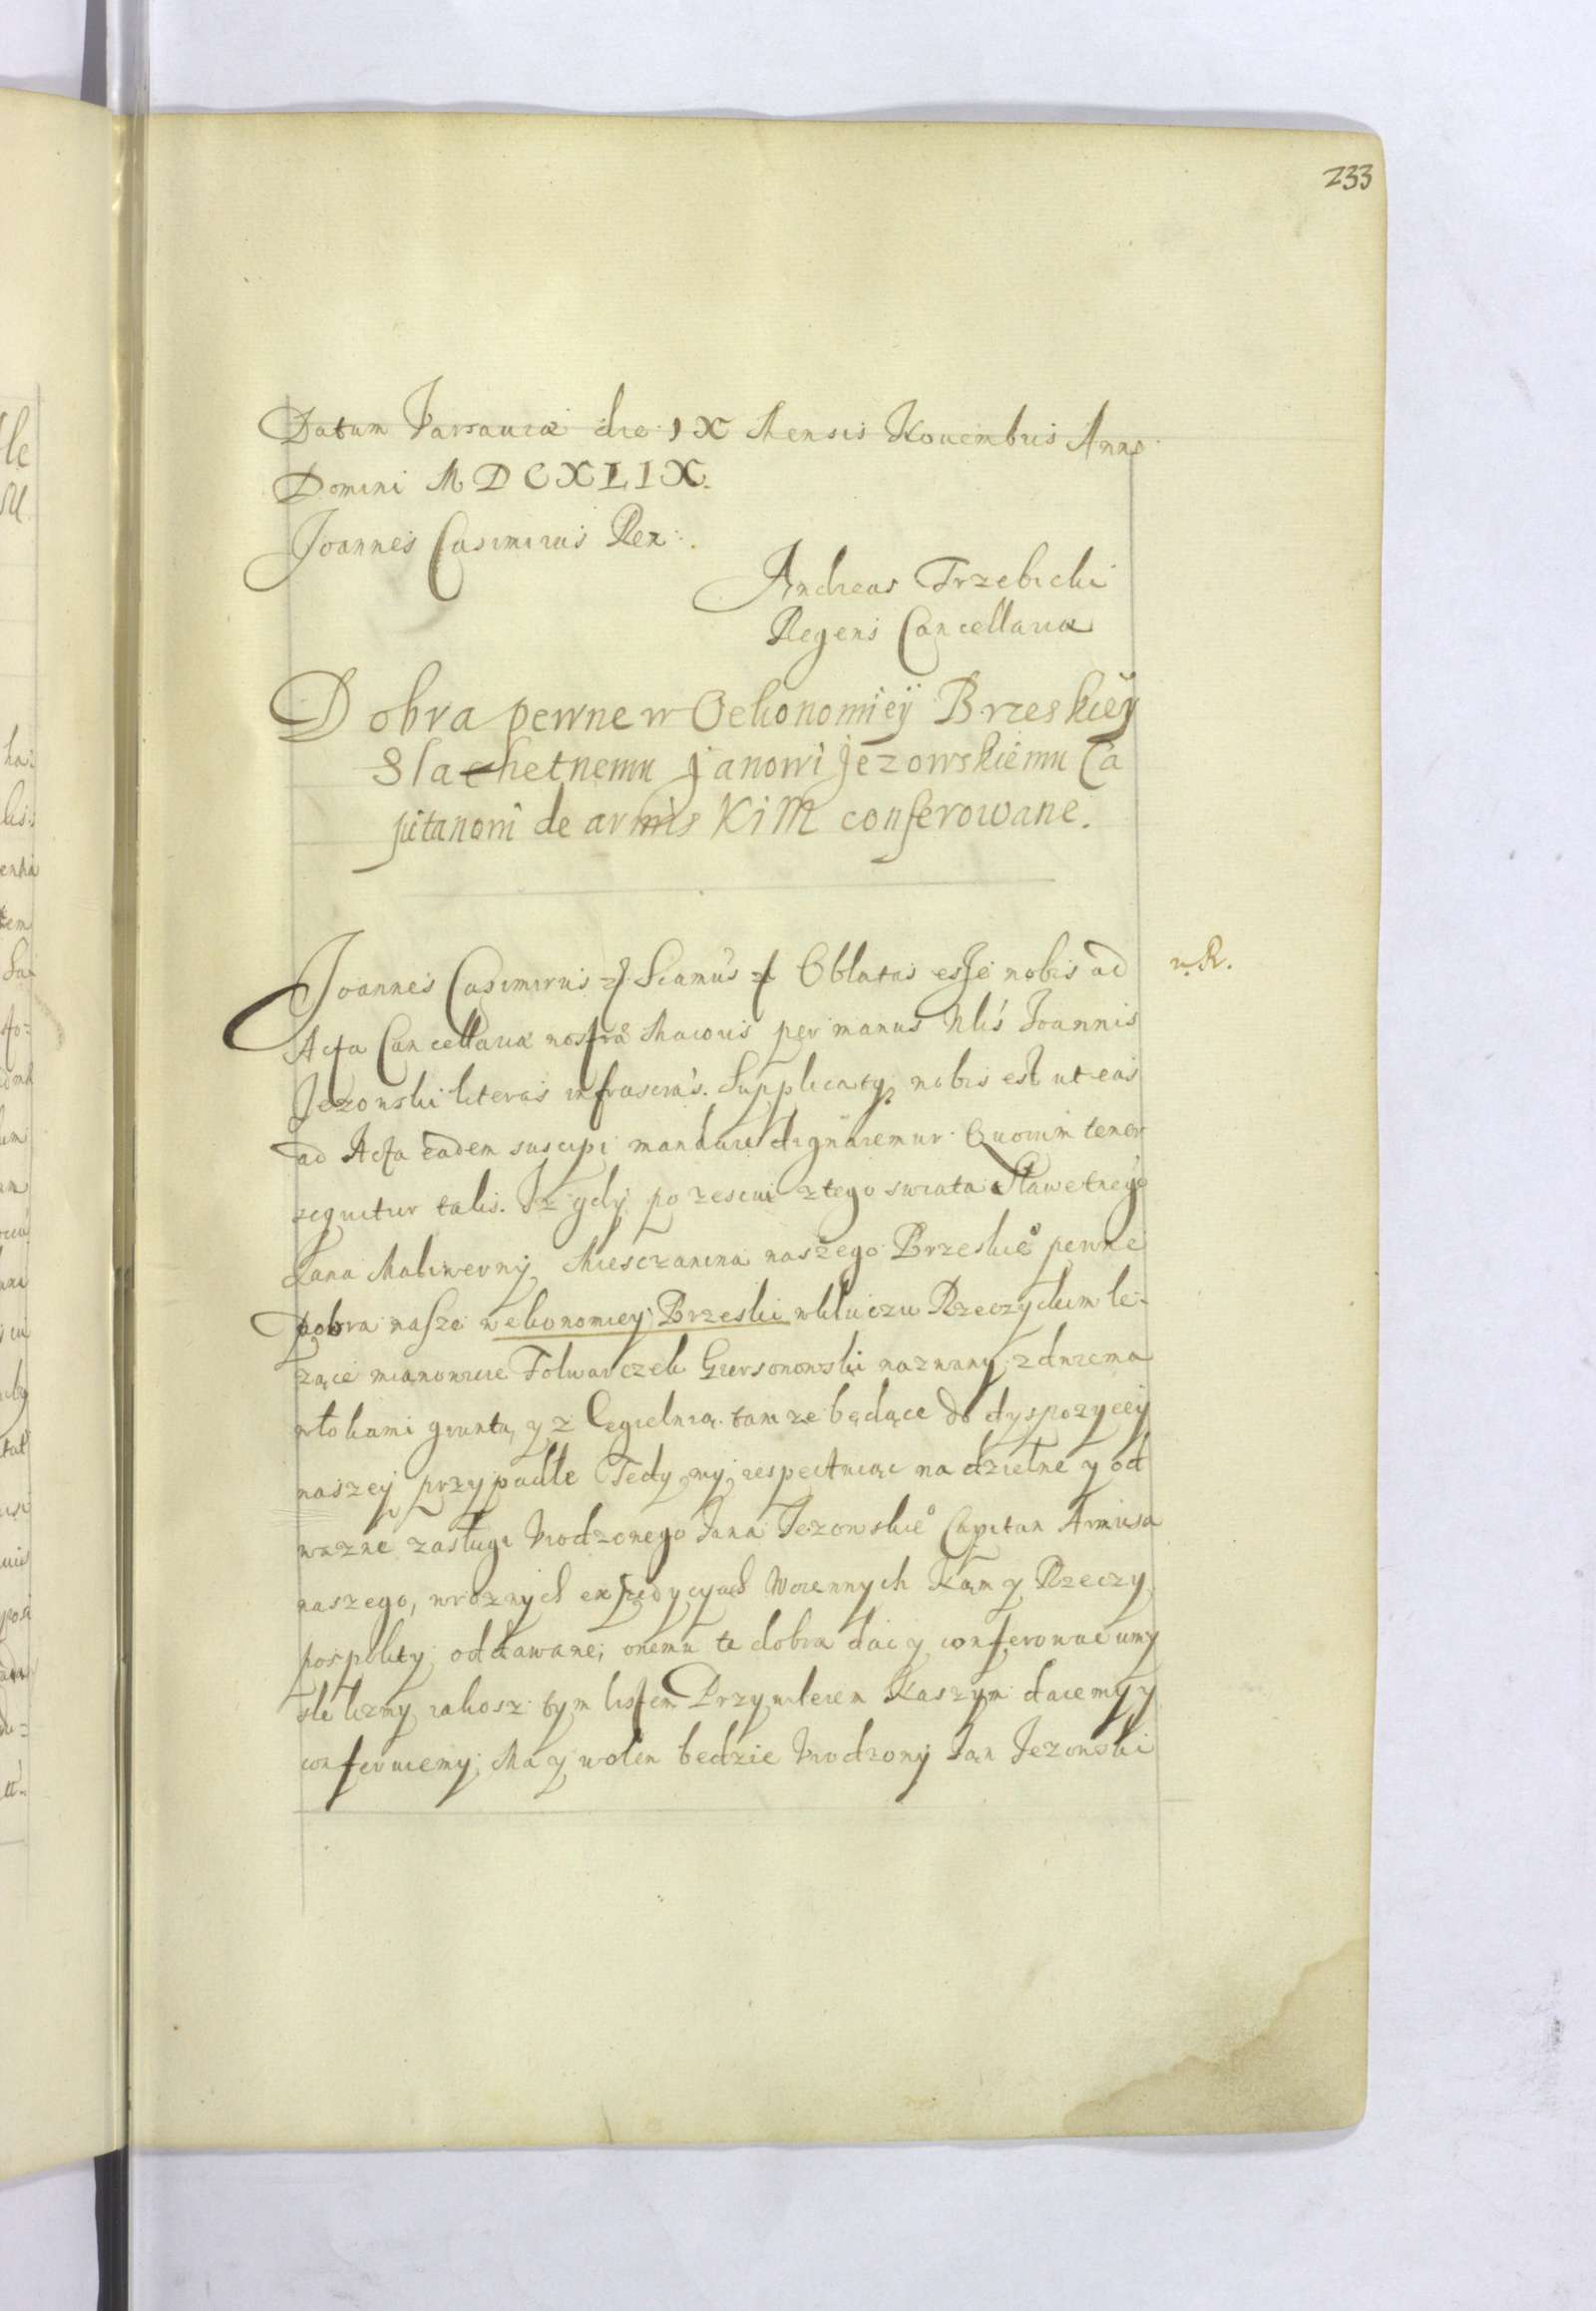 233
Datum Varsauiæ die IX Mensis Nouembris Anno
Domini MDCXLIX.
Joannes Casimirus Rex.
Andreas Trzebicki
Regens Cancellariæ
Dobra pewne w Oekonomiey Brzeskiey
Slachetnemu Janowi Jezowskiemu Ca
pitanowi de armis KiM conferowane.
Joannes Casimirus Scamus Oblatas esse nobis ad
n. R.
Acta Cancellariæ nostræ Maioris per manus Nlis Joannis
Jezowski literas infrascras. Supplicatq nobis est ut eas
ad Acta eadem suscipi mandare dignaremur Quorum tenor
sequitur talis. Iz gdy po zesciu z tego swiata Sławetnego
Jana Maliwerny Miesczanina naszego Brzeskie͛ pewne
Dobra nasze w ekonomiey Brzeski w kluiczu Rzeczyckim le-
zące mianowicie Folwarczek Giersonowski nazwany z dwiema
włokami gruntu, y z Cegielnią tamze będące do dyspozycey
naszey przypadłe Tedy my respectuiąc na dzielne y od
wazne zasługi Vrodzonego Jana Jezowskie͛ Capitan Armisa
naszego, w roznych expedycyach Woiennych Nam y Rzeczy
pospolity oddawane, onemu te dobra dac y conferowac umy
sle lizmy iakosz tym listem Przywileiem Naszym daiemy y
conferuiemy; Ma y wolen bedzie Vrodzony Jan Jezowski